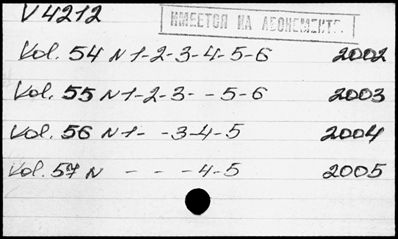 V 4212
ИМЕЕТСЯ НА АБОНЕМЕНТЕ.
Vol. 54 N 1-2-3-4-5-6 2002
Vol. 55 N 1-2-3- -5-6 2003
Vol. 56 N 1- -3-4-5 2004
Vol. 57 N - - -4-5 2005